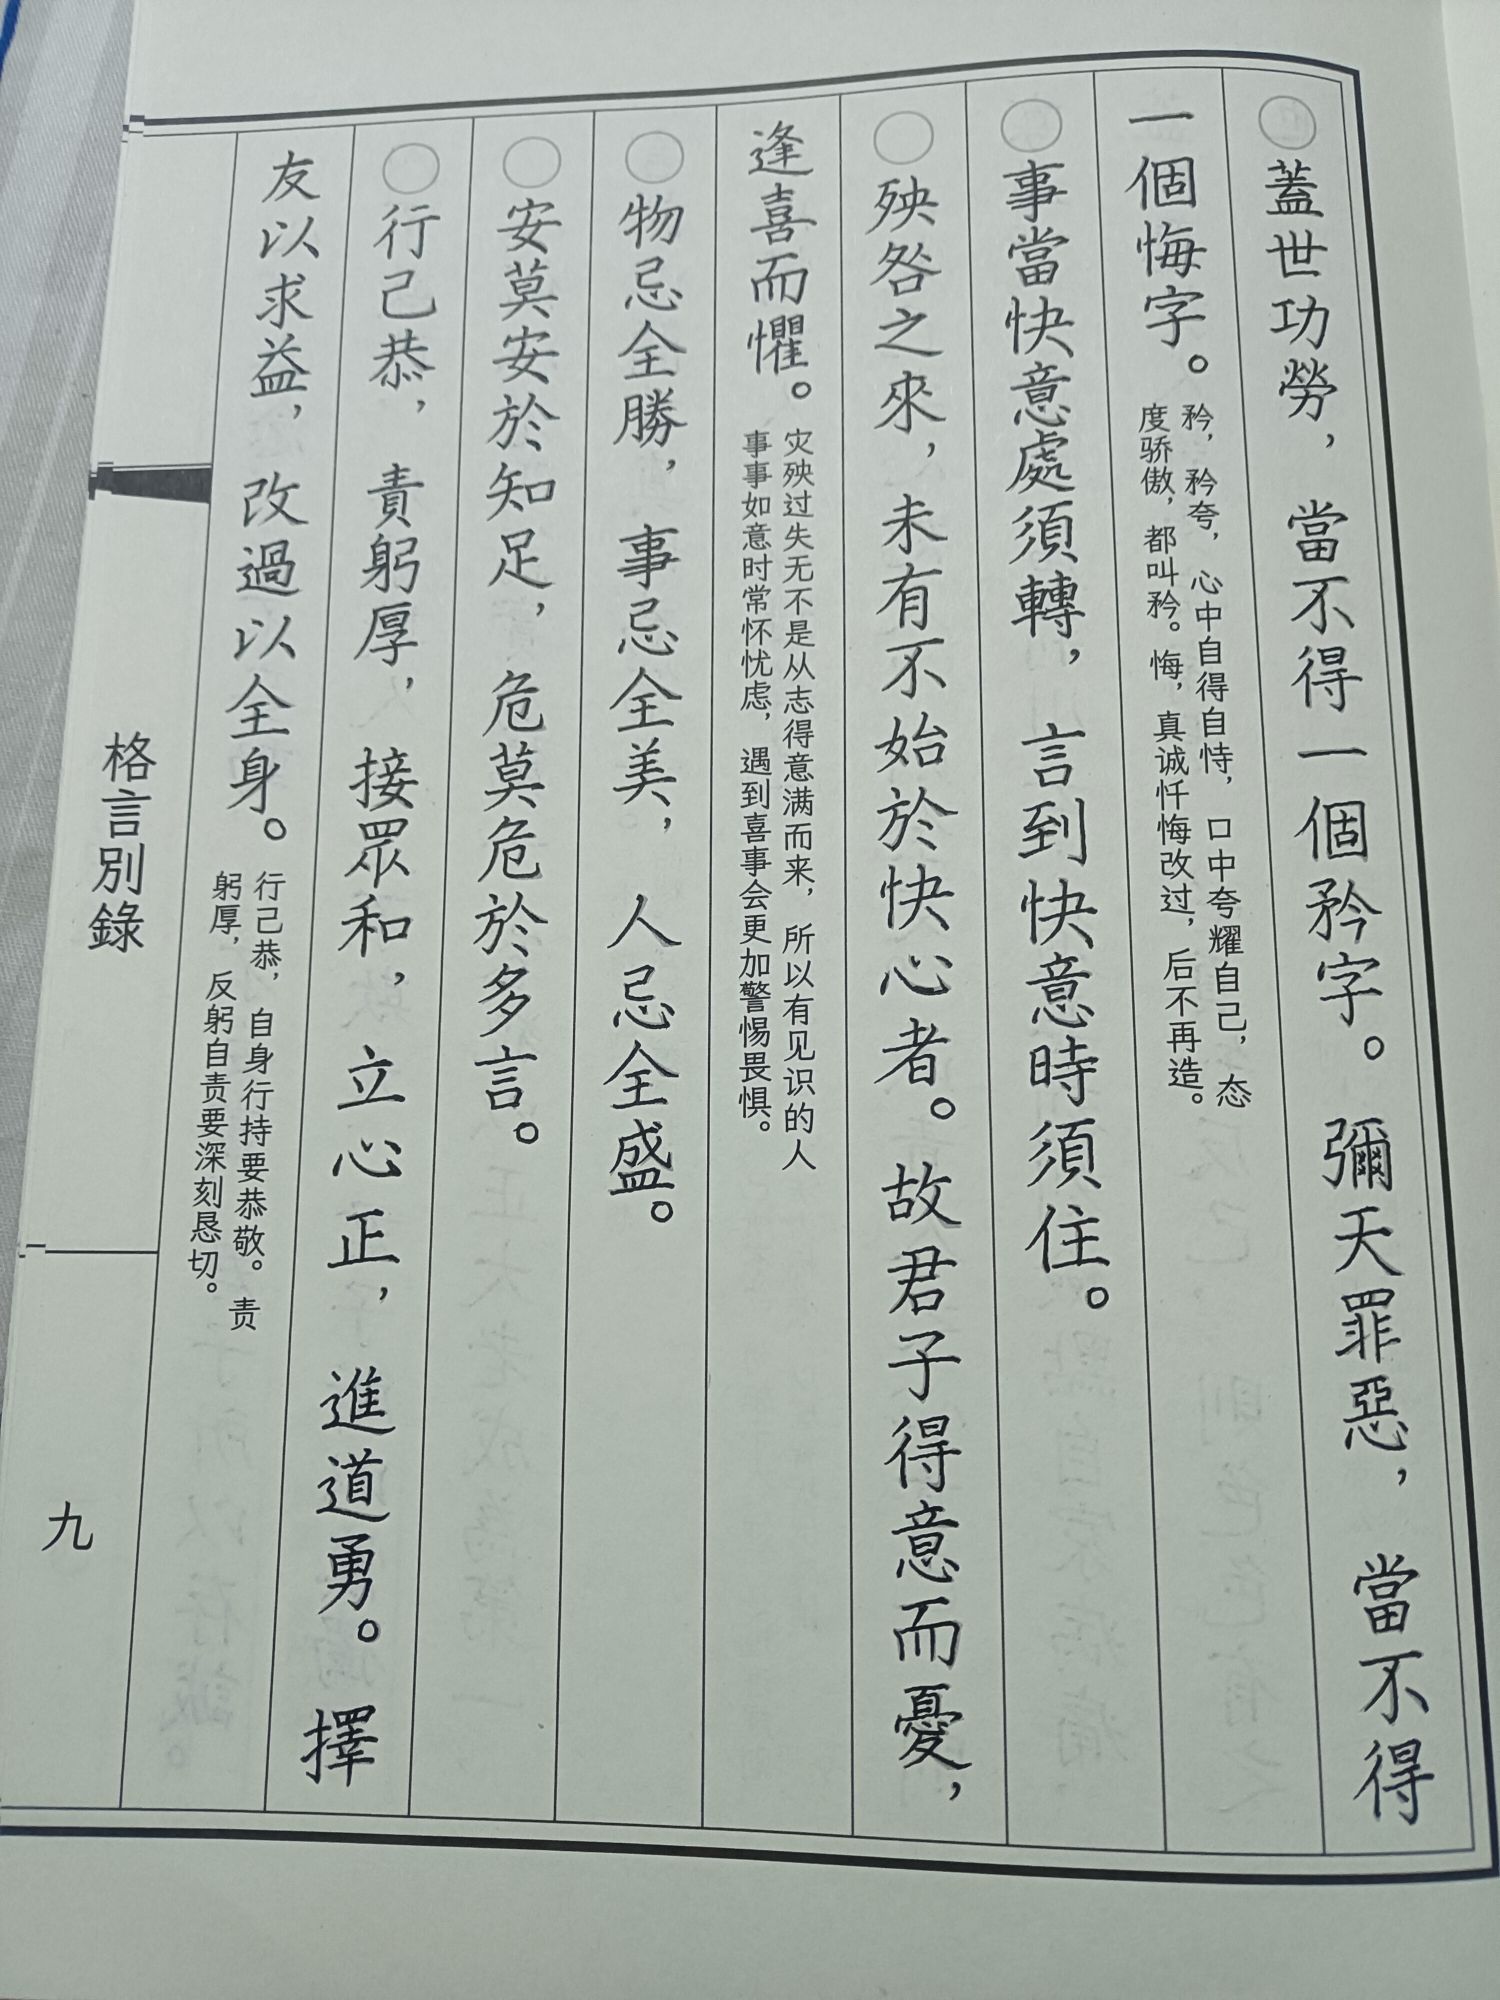 ○蓋世功勞，當不得一個矜字。彌天罪惡，當不得
一個悔字。
矜，矜夸，心中自得自恃，口中夸耀自己，态
度骄傲，都叫矜。悔，真诚忏悔改过，后不再造。
○事當快意處須轉，言到快意時須住。
○殃咎之來，未有不始於快心者。故君子得意而憂，
逢喜而懼。
灾殃过失无不是从志得意满而来，所以有见识的人
事事如意时常怀忧虑，遇到喜事会更加警惕畏惧。
○物忌全勝，事忌全美，人忌全盛。
○安莫安於知足，危莫危於多言。
○行己恭，責躬厚，接眾和，立心正，進道勇。擇
友以求益，改過以全身。
行己恭，自身行持要恭敬。责
躬厚，反躬自责要深刻恳切。
格言別錄
九